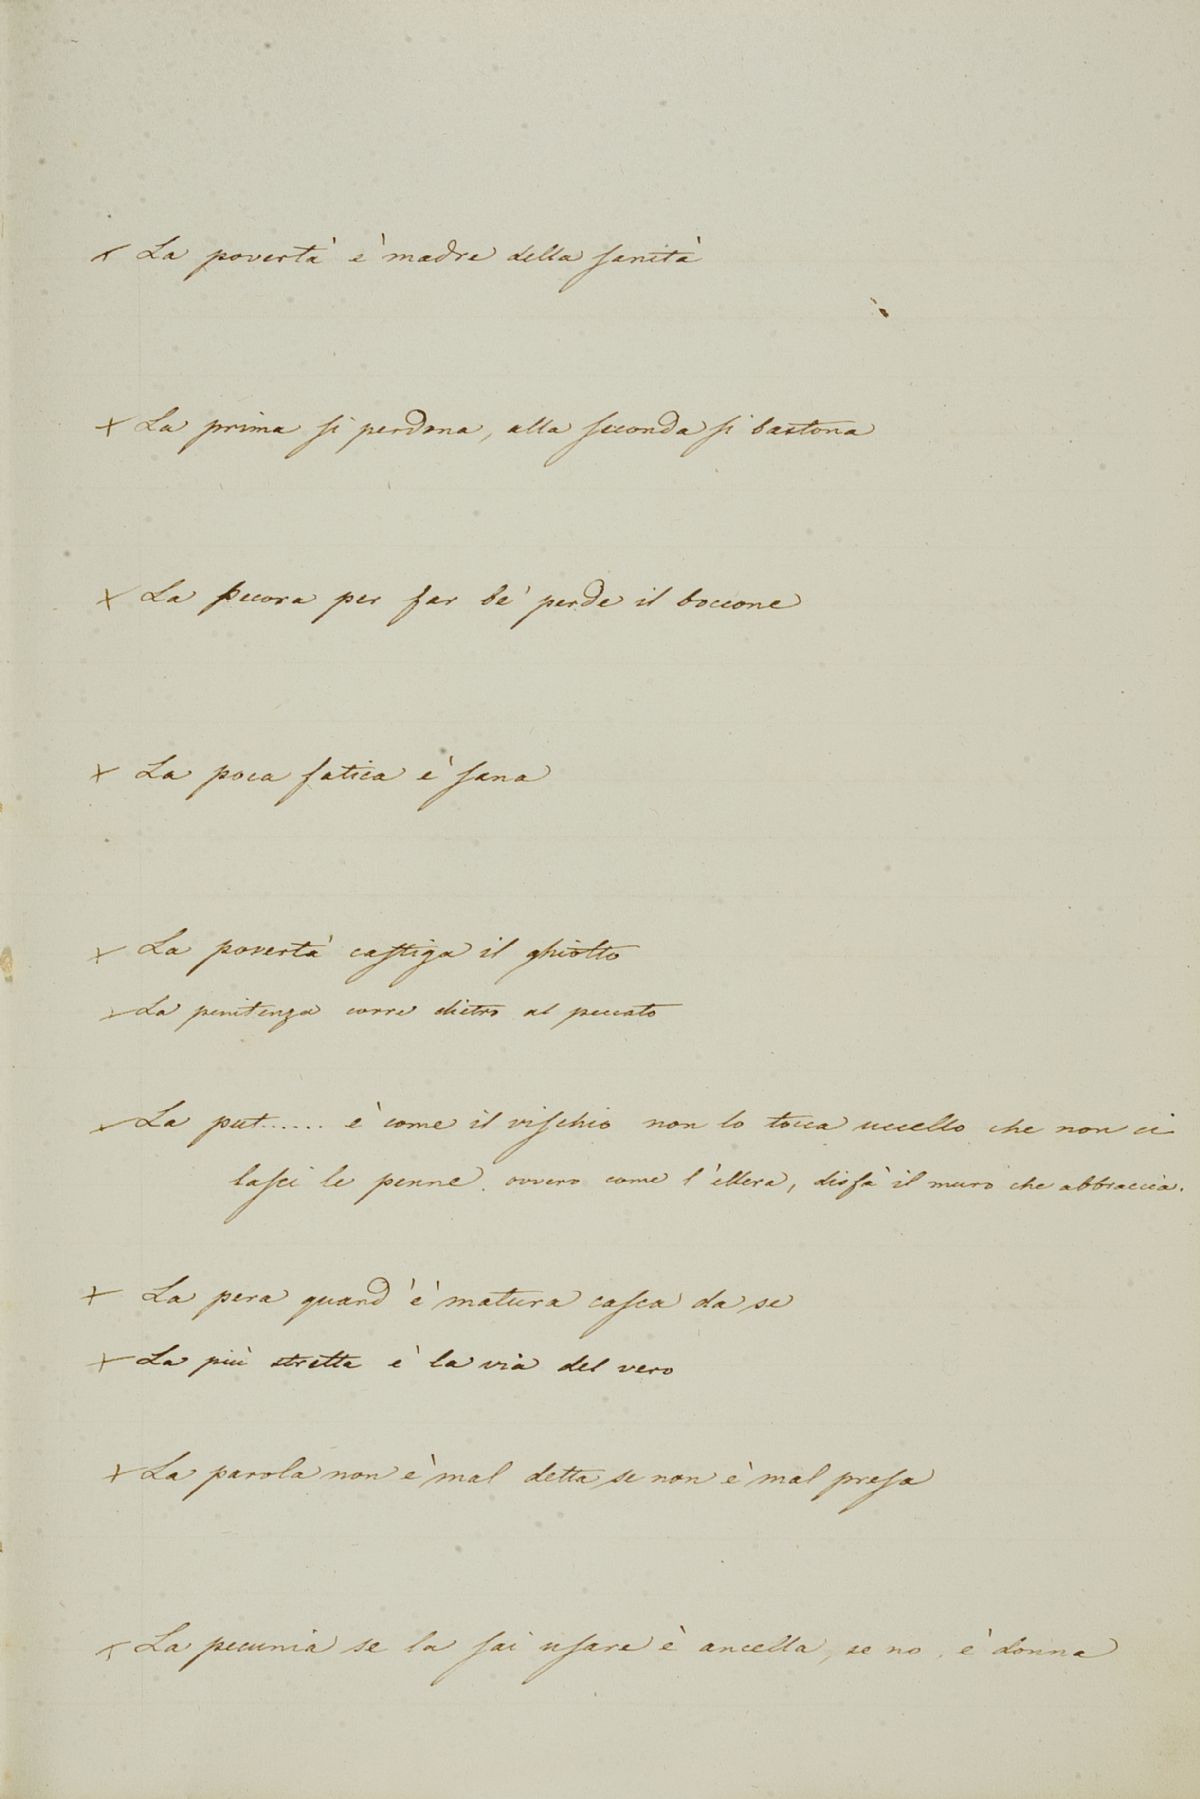 × La povertà è madre della sanità
× La prima si perdona, alla seconda si bastona
× La Pecora per far bè perde il boccone
× La poca fatica è sana
× La povertà castiga il ghiotto
× La penitenza corre dietro al peccato
× La put...... è come il vischio non lo tocca uccello che non ci
lasci le penne. ovvero come l'ellera, disfà il muro che abbraccia.
× La pera quand'è matura casca da se
× La più stretta è la via del vero
× La parola non è mal detta se non è mal presa
× La pecunia se la sai usare è ancella, se no, è donna